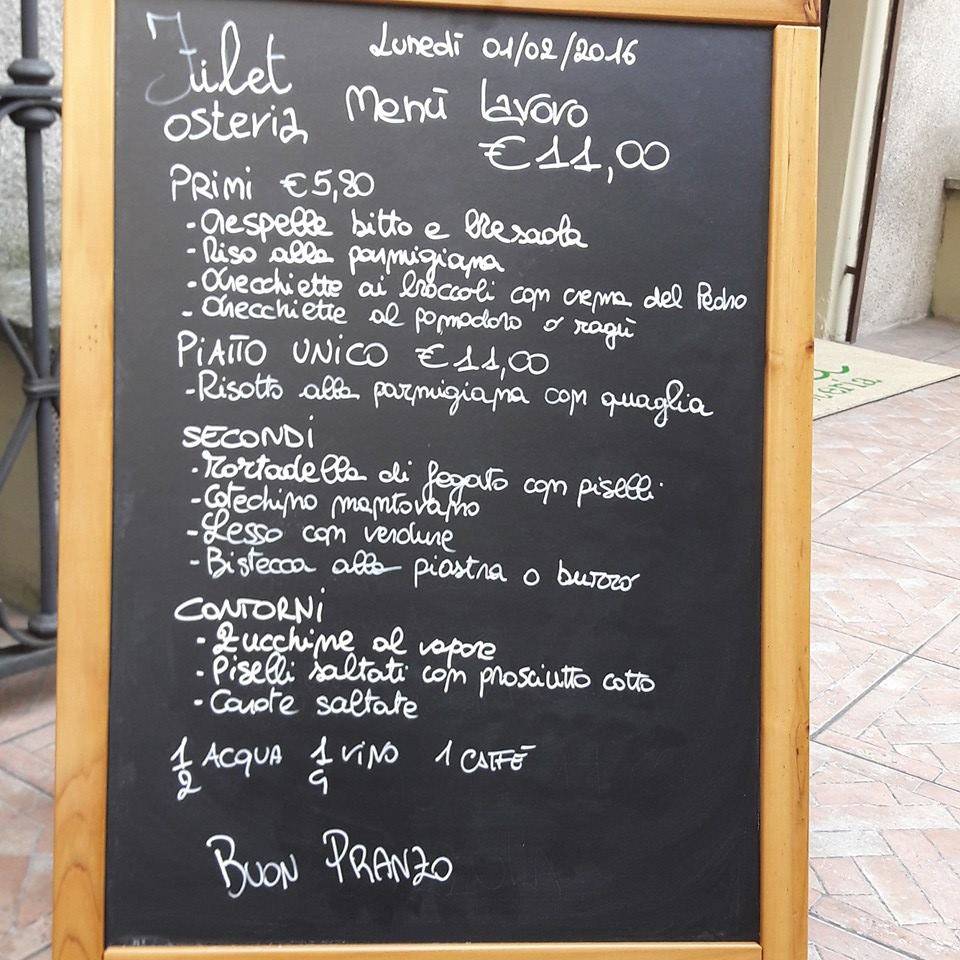 Filet
osteria
Lunedì 01/02/2016
Menù Lavoro
€ 11,00
PRIMI € 5,80
- Crespelle bitto e bresaola
- Riso alla parmigiana
- Orecchiette ai broccoli con crema del Pedro
- Orecchiette al pomodoro o ragù
PIATTO UNICO € 11,00
- Risotto alla parmigiana con quaglia
SECONDI
- Mortadella di fegato con piselli
- Cotechino mantovano
- Lesso con verdure
- Bistecca alla piastra o burro
CONTORNI
- Zucchine al vapore
- Piselli saltati con prosciutto cotto
- Carote saltate
1/2 ACQUA 1/4 VINO 1 CAFFÈ
BUON PRANZO